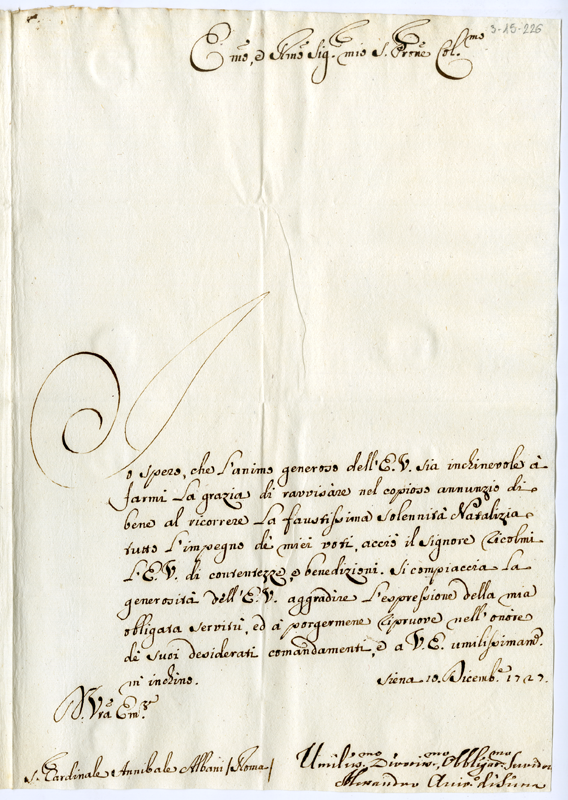 3-15-226
E.mo, e R.mo Sig.r mio S. Prōne Col.mo
Io spero, che l'animo generoso dell'E.V. sia inchinevole à
farmi la grazia di ravvisare nel copioso annunzio di
bene al ricorrere la faustissima solennità Natalizia
tutto l'impegno de miei voti, acciò il Signore ricolmi
l'E.V. di contentezze, e benedizioni. Si compiaccia la
generosità dell'E.V. aggradire l'espressione della mia
obligata servitù, ed à porgermene ripruove nell'onore
de suoi desiderati comandamenti, e a V.E. umilissimam.e
m'inchino. Siena 10. Dicemb.e 1727.
D. Vrā Em.za
S. Cardinale Annibale Albani /Roma/
Umiliss.mo Divotiss.mo Obblig.mo Servidor
Alessandro Arciv.o di Siena